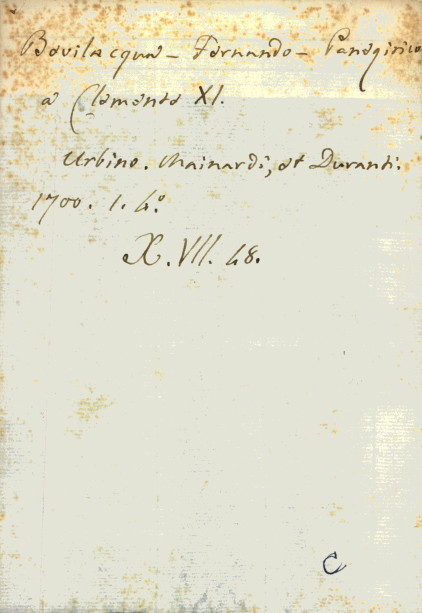 Bevilacqua - Fernando - Panegirico
a Clemente XI.
Urbino. Mainardi, et Duranti.
1700. 1. 4.º
X. VII. 48.
C